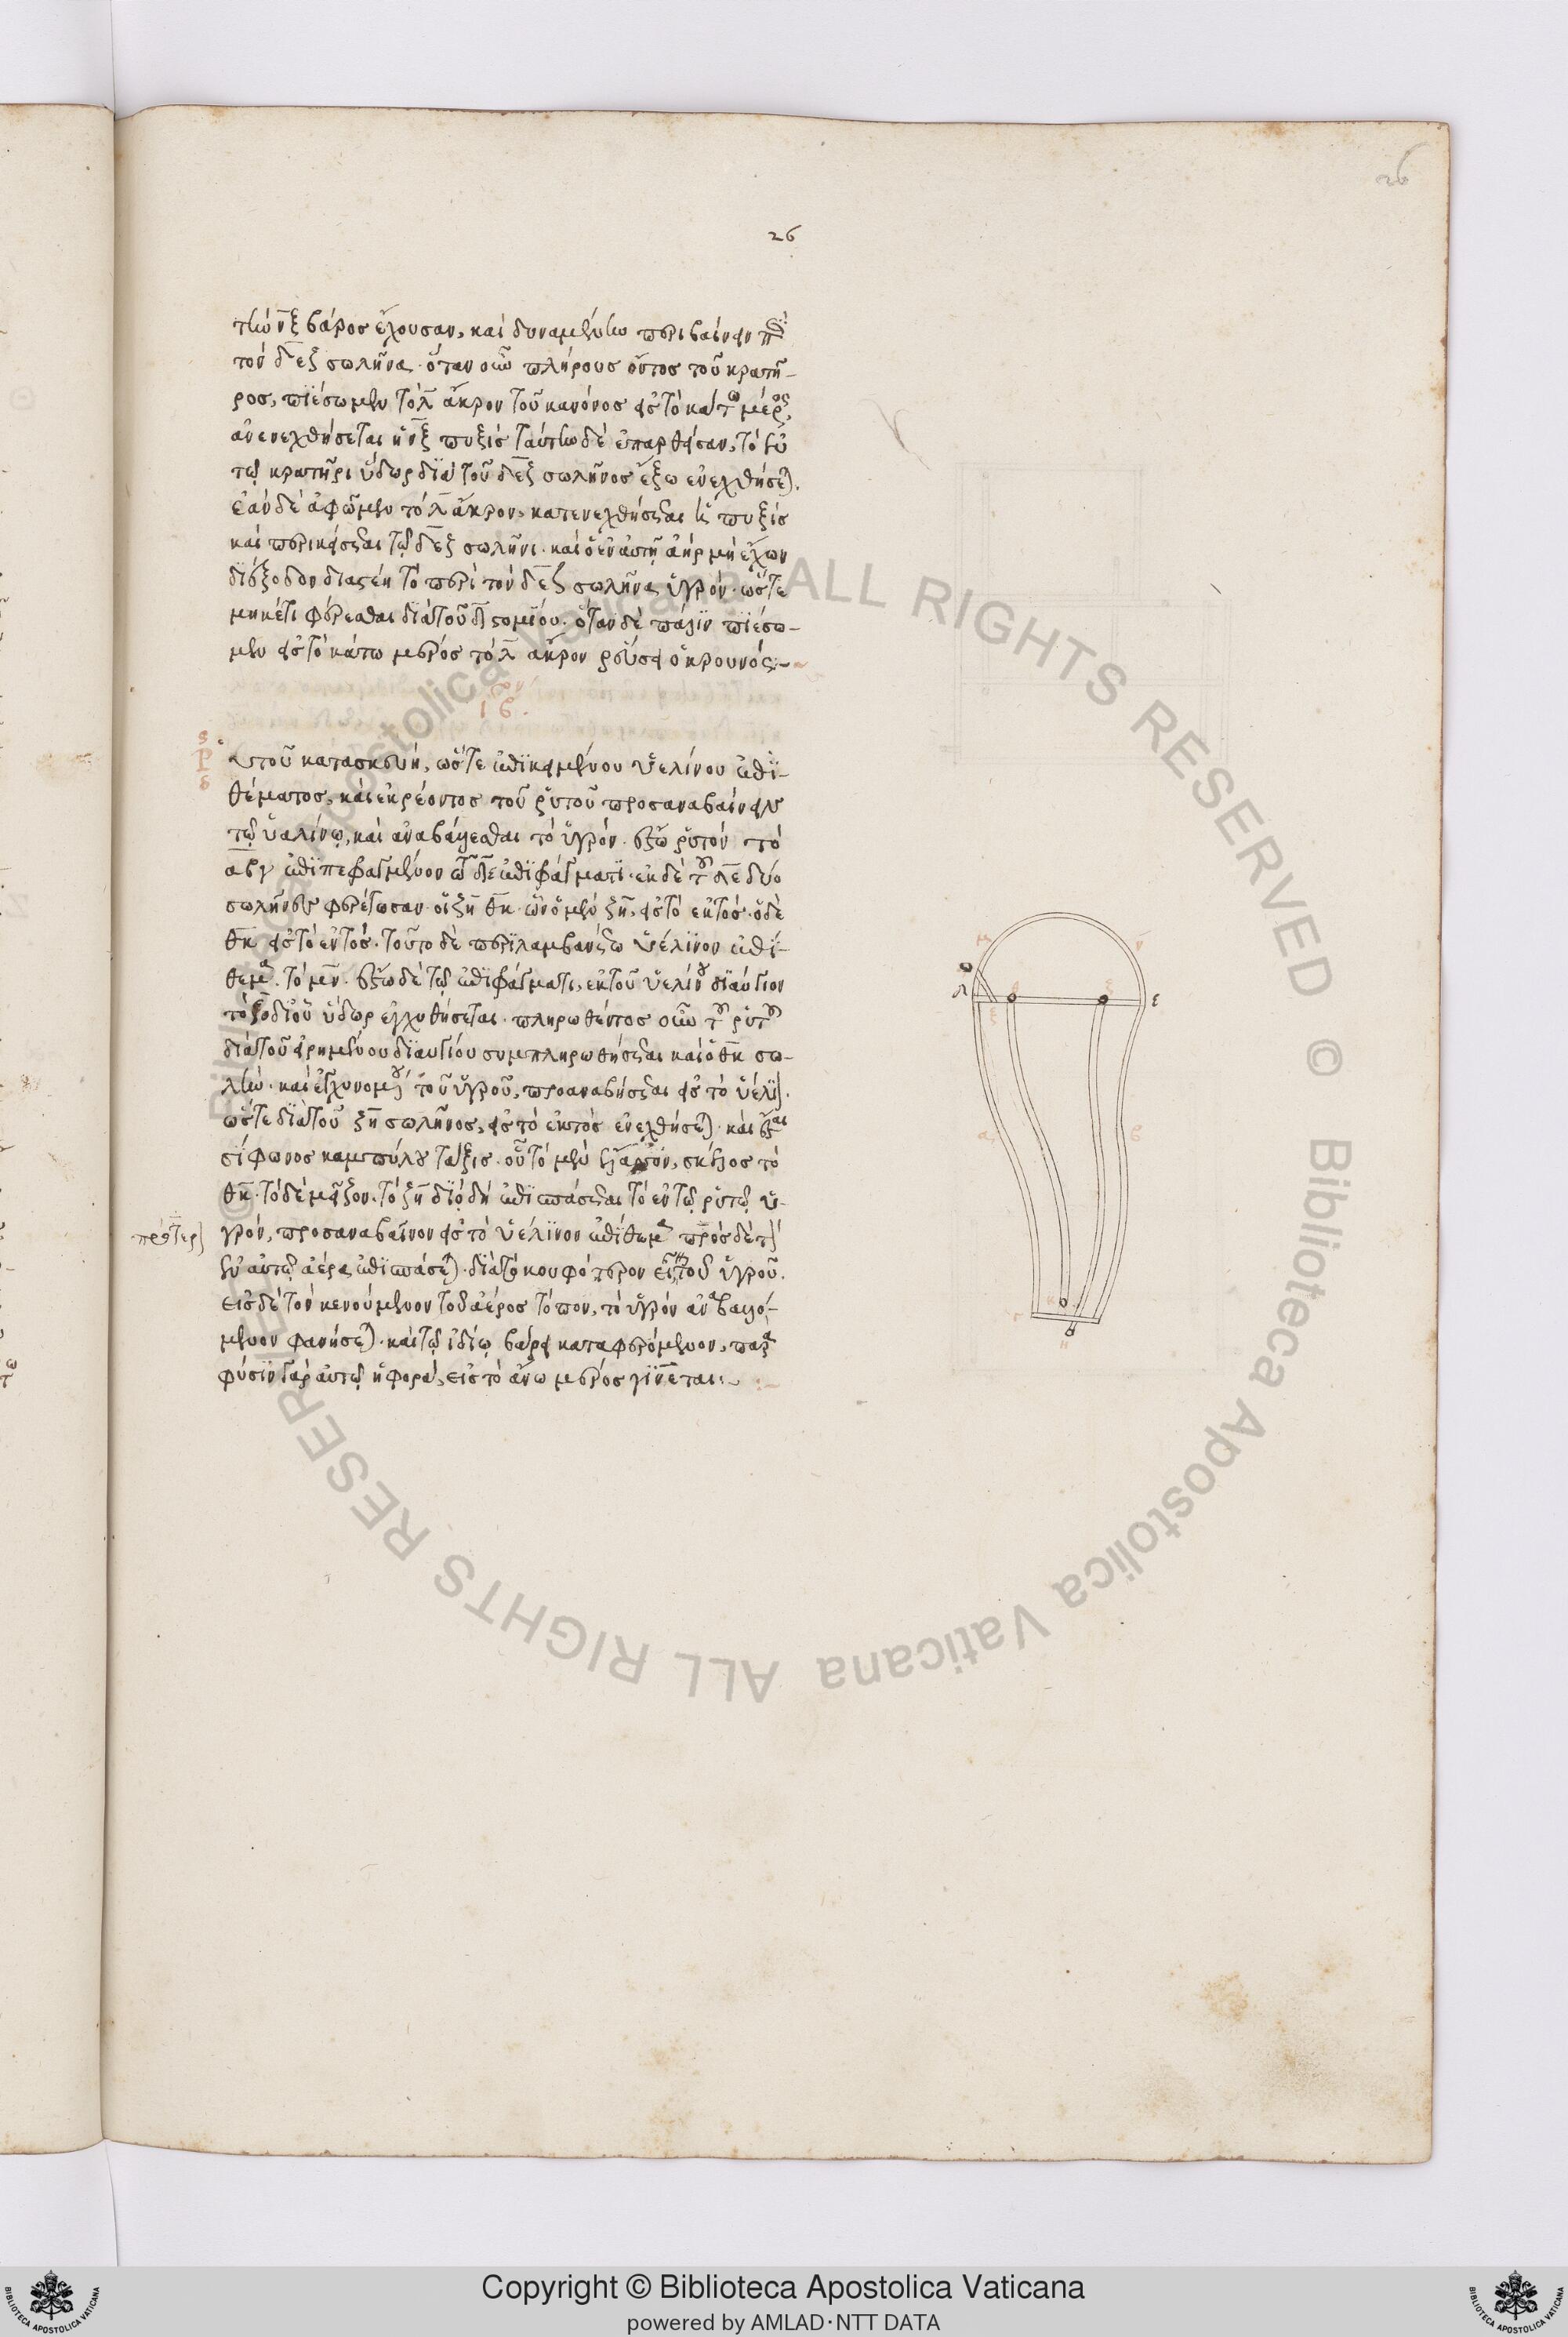 26
26
τὴν νξ βάρος ἔχουσαν, καὶ δυναμένην περιβαίνειν
τὸν δεζ σωλῆνα. ὅταν οὖν πλήρους ὄντος τοῦ κρατῆ-
ρος, πιέσωμεν τὸ λ ἄκρον τοῦ κανόνος εἰς τὸ κάτω μέρος,
ἀνενεχθήσεται ἡ νξ πυξίς ταύτην δὲ ἐπαρθεῖσαν, τὸ ἐν
τῷ κρατῆρι ὕδωρ διὰ τοῦ δεζ σωλῆνος ἔξω ἐνεχθήσεται.
ἐὰν δὲ ἀφῶμεν τὸ λ ἄκρον, κατενεχθήσεται ἡ πυξίς
καὶ περικείσεται τῷ δεζ σωλῆνι. καὶ ὁ ἐν αὐτῇ ἀὴρ μὴ ἔχων
διέξοδον διαστέλει τὸ περὶ τὸν δεζ σωλῆνα ὑγρόν. ὥστε
μηκέτι φέρεσθαι διὰ τοῦ στομίου. ὅταν δὲ πάλιν πιέσω-
μεν εἰς τὸ κάτω μέρος τὸ λ ἄκρον ῥεύσει ὁ κρουνός:-
ιβ.
Ρυτοῦ κατασκευή, ὥστε ἐπικειμένου ὑελίνου ἐπι-
θέματος, καὶ ἐκρέοντος τοῦ ῥυτοῦ προσαναβαίνειν
τῷ ὑαλίνῳ, καὶ ἀναβάλλεσθαι τὸ ὑγρόν. ἔστω ῥυτὸν τὸ
αβγ ἐπιπεφραγμένον τῷ δε ἐπιφράγματι. ἐκ δὲ τοῦ δε δύο
σωλῆνες φερέτωσαν οἱ ξη θκ. ὧν ὁ μὲν ξη, εἰς τὸ ἐκτός. ὁ δὲ
θκ εἰς τὸ ἐντός. τοῦτο δὲ περιλαμβανέτω ὑέλινον ἐπί-
θεμα τὸ μν. ἔστω δὲ τῷ ἐπιφράγματι, ἐκ τοῦ ὑελίνου διαύγιον
τὸ ξο δι' οὗ ὕδωρ ἐγχυθήσεται. πληρωθέντος οὖν τοῦ ῥυτοῦ
διὰ τοῦ εἰρημένου διαυγίου συμπληρωθήσεται καὶ ὁ θκ σω-
λήν. καὶ ἐγχυνομένου τοῦ ὑγροῦ, προαναβήσεται εἰς τὸ ὑέλινον.
ὥστε διὰ τοῦ ξη σωλῆνος, εἰς τὸ ἐκτὸς ἐνεχθήσεται. καὶ ἔσται
σίφωνος καμπύλου τάξις. οὗ τὸ μὲν ἔλαττον, σκέλος τὸ
θκ. τὸ δὲ μεῖζον. τὸ ξη διὸ δὴ ἐπισπάσεται τὸ ἐν τῷ ῥυτῷ ὑ-
γρόν, προσαναβαῖνον εἰς τὸ ὑέλινον ἐπίθεμα πρὸς δὲ τὸν
πρότερον
ἐν αὐτῷ ἀέρα ἐπισπάσεται. διὰ τὸ κουφότερον εἶναι τοῦ ὑγροῦ.
εἰς δὲ τὸν κενούμενον τοῦ ἀέρος τόπον, τὸ ὑγρὸν ἀναβαλλό-
μενον φανήσεται. καὶ τῷ ἰδίῳ βάρει καταφερόμενον, παρὰ
φύσιν γὰρ αὐτῷ ἡ φορά, εἰς τὸ ἄνω μέρος γίνεται:-
μ
ν
ο
λ
θ
ξ
ε
ξ
α
β
κ
γ
η
Copyright © Biblioteca Apostolica Vaticana
powered by AMLAD·NTT DATA
© Biblioteca Apostolica Vaticana ALL RIGHTS RESERVED © Biblioteca Apostolica Vaticana ALL RIGHTS RESERVED
BIBLIOTECA APOSTOLICA VATICANA
BIBLIOTECA APOSTOLICA VATICANA